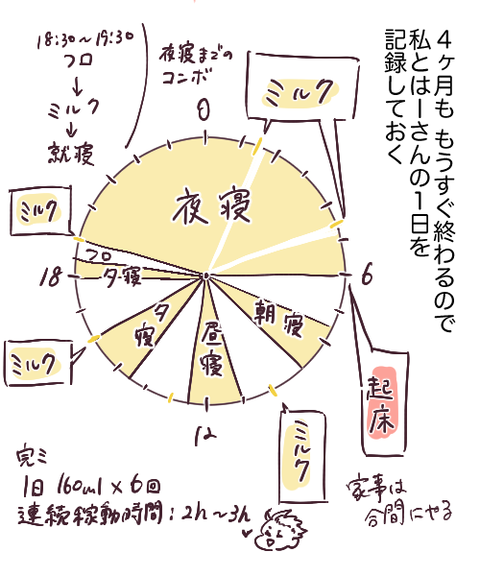 4ヶ月も もうすぐ終わるので
私とはーさんの1日を
記録しておく
18:30〜19:30
フロ
↓
ミルク
↓
就寝
夜寝までの
コンボ
0
ミルク
夜寝
ミルク
フロ
夕寝
18
6
朝寝
夕寝
昼寝
ミルク
起床
12
ミルク
完ミ
1日 160ml×6回
連続稼動時間:2h〜3h
家事は
合間にやる